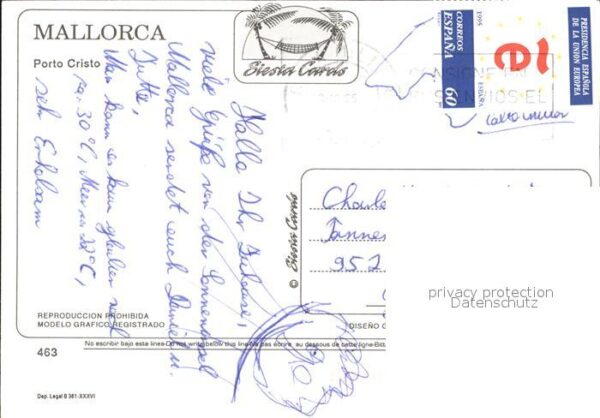 MALLORCA
Porto Cristo
Siesta Cards
CORREOS
ESPAÑA
1995
60
ESPAÑA
PRESIDENCIA ESPAÑOLA
DE LA UNION EUROPEA
Hallo Ihr Zuhause,
viele Grüße von der Sonneninsel
Mallorca sendet euch Daniel u.
Jutta,
Man kann es kaum glauben noch
ca. 30°C, Meer ca. 22°C,
sehr Erholsam
© Siesta Cards
Charle
Tannen
952
privacy protection
Datenschutz
REPRODUCCION PROHIBIDA
MODELO GRAFICO REGISTRADO
DISEÑO
463
No escribir bajo esta linea-Do not write below this line-
au dessous de cette ligne-Bitt
Dep. Legal B 361-XXXVI